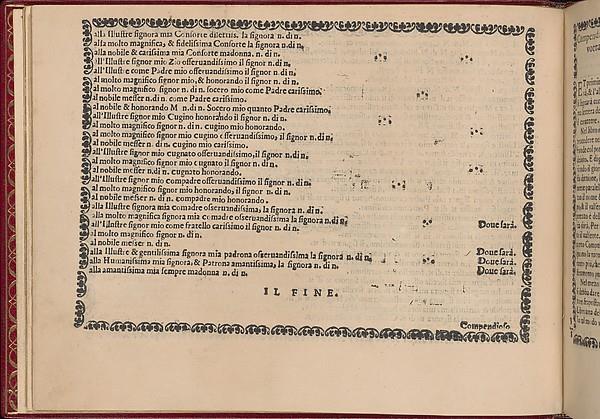 alla Illustre signora mia Consorte dilettiss. la signora n. di n.
alla molto magnifica, & fidelissima Consorte la signora n.di n.
alla nobile & carissima mia Consorte madonna. n. di n.
all'Illustre signor mio Zio osseruandissimo il signor n. di n.
all'Illustre come Padre mio osseruandissimo il signor n. di n.
al molto magnifico signor mio, & honorando il signor n. di n.
al molto magnifico signor n. di n. socero mio come Padre carissimo.
al nobile messer n. di n. come Padre carissimo.
al nobile & honorando M n. di n. Socero mio quanto Padre carissimo.
all'Illustre signor mio Cugino honorando il signor n. di n.
al molto magnifico signor n. di n. cugino mio honorando.
al molto magnifico signor mio cugino osseruandissimo, il signor n. di n.
al nobile messer n. di n. cugino mio carissimo.
all'Illustre signor mio cugnato osseruandissimo, il signor n. di n.
al molto magnifico signor mio cugnato il signor n. di n.
al nobile messer n.di n. cugnato honorando.
all'Illustre signor mio compadre osseruandissimo il signor n. di n.
al molto magnifico signor mio honorando, il signor n. di n.
al nobile messer n. di n. compadre mio honorando.
alla Illustre signora mia comadre osseruandissima, la signora n. di n.
alla molto magnifica signora mia comadre osseruandissima la signora n. di n.
all'Illustre signor mio come fratello carissimo il signor n. di n. Doue sarà.
al molto magnifico signor n. di n.
al nobile messer n. di n.
alla Illustre & gentilissima signora mia padrona osseruandissima la signora n. di n. Doue sarà.
alla Humanissima mia signora, & Patrona amantissima, la signora n. di n. Doue sarà.
alla amantissima mia sempre madonna n. di n. Doue sarà.
IL FINE.
Compendioso